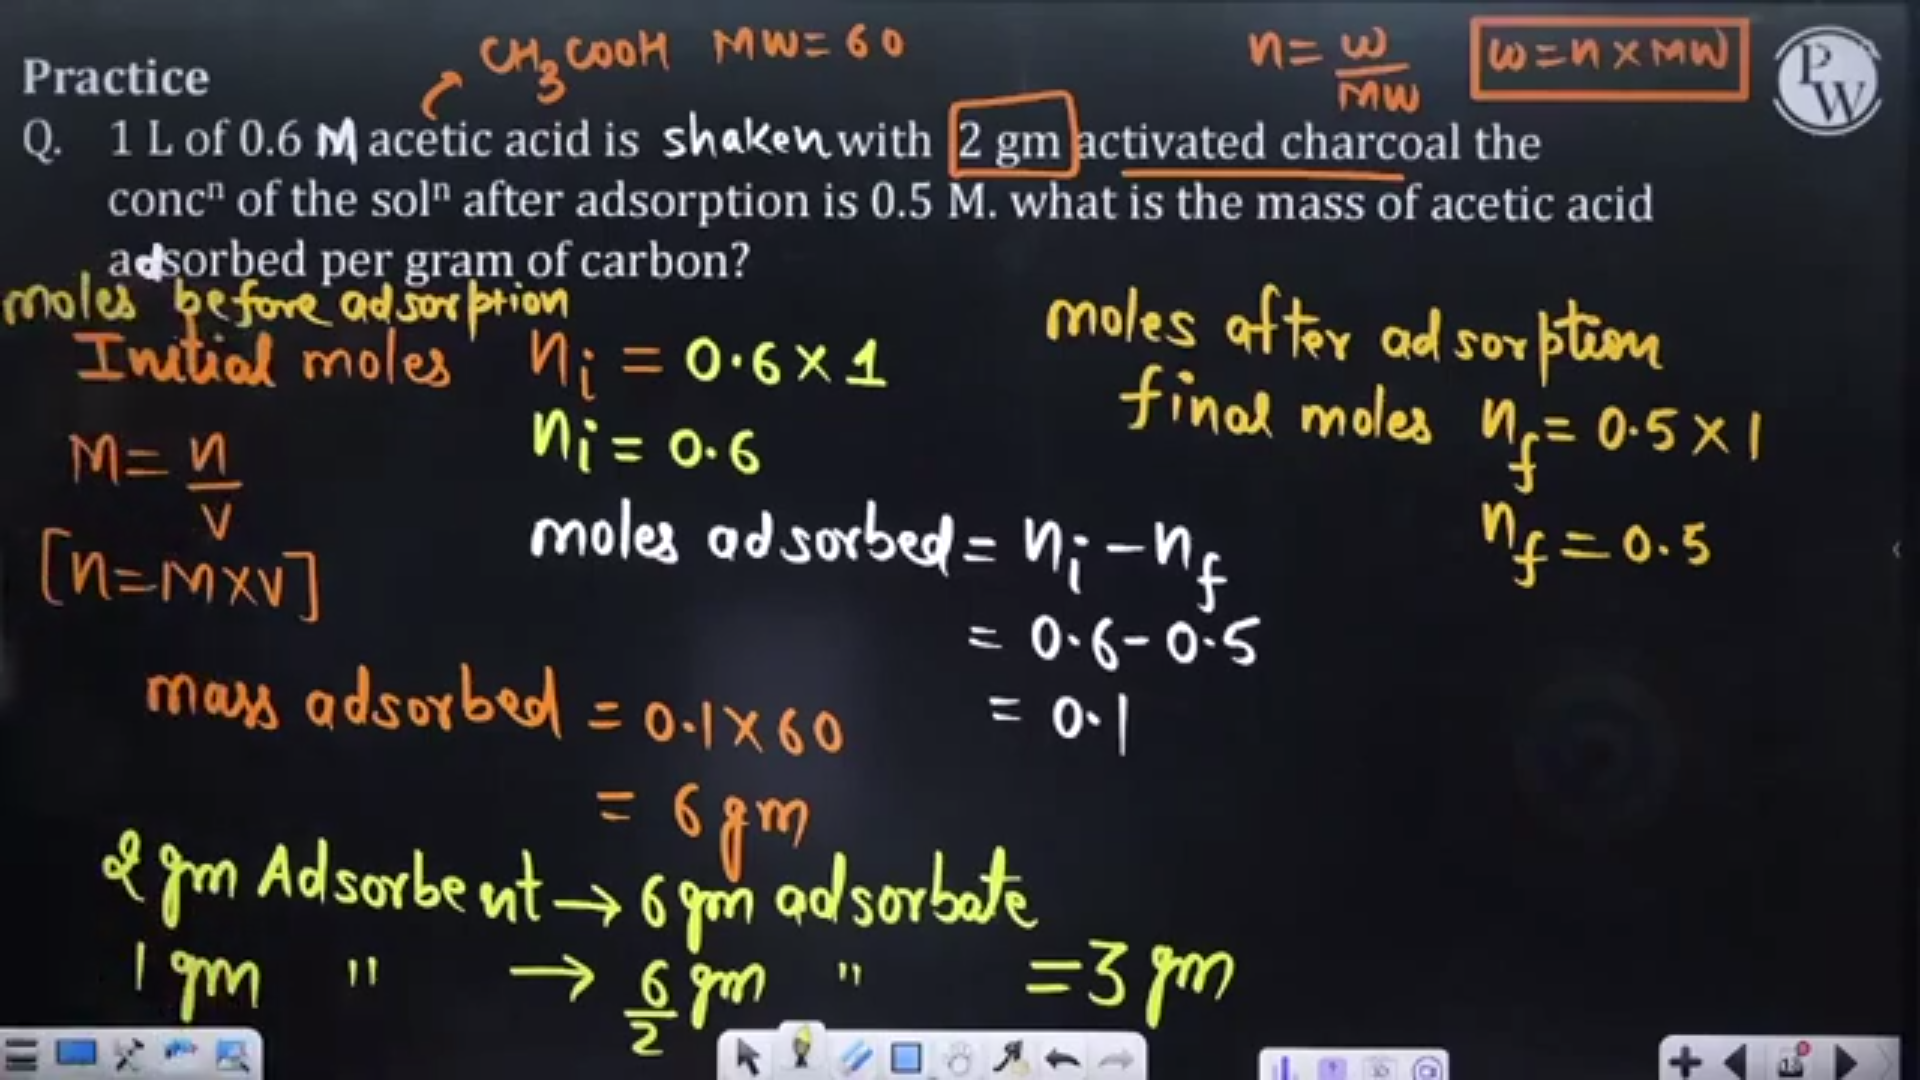 CH3COOH MW=60
n=w/MW
w=n×MW
PW
Practice
Q. 1 L of 0.6 M acetic acid is shaken with 2 gm activated charcoal the
concⁿ of the solⁿ after adsorption is 0.5 M. what is the mass of acetic acid
adsorbed per gram of carbon?
moles before adsorption
Initial moles ni = 0.6×1
ni = 0.6
M = n/V
[n=M×V]
moles after adsorption
final moles nf = 0.5×1
nf = 0.5
moles adsorbed = ni - nf
= 0.6-0.5
= 0.1
mass adsorbed = 0.1×60
= 6 gm
2 gm Adsorbent → 6 gm adsorbate
1 gm " → 6/2 gm " = 3 gm